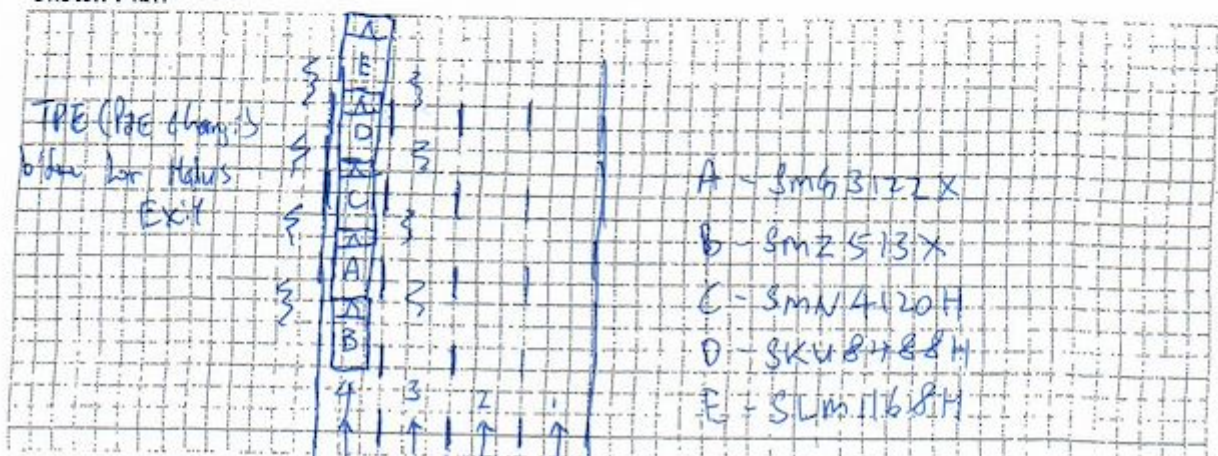 TPE (PIE Changi)
b'fore Lor Halus
Exit
E
D
C
A
B
4 3 2 1
A - SMG 3122 X
B - SMZ 513 X
C - SMN 4120 H
D - SKU 8488 H
E - SLM 1168 H